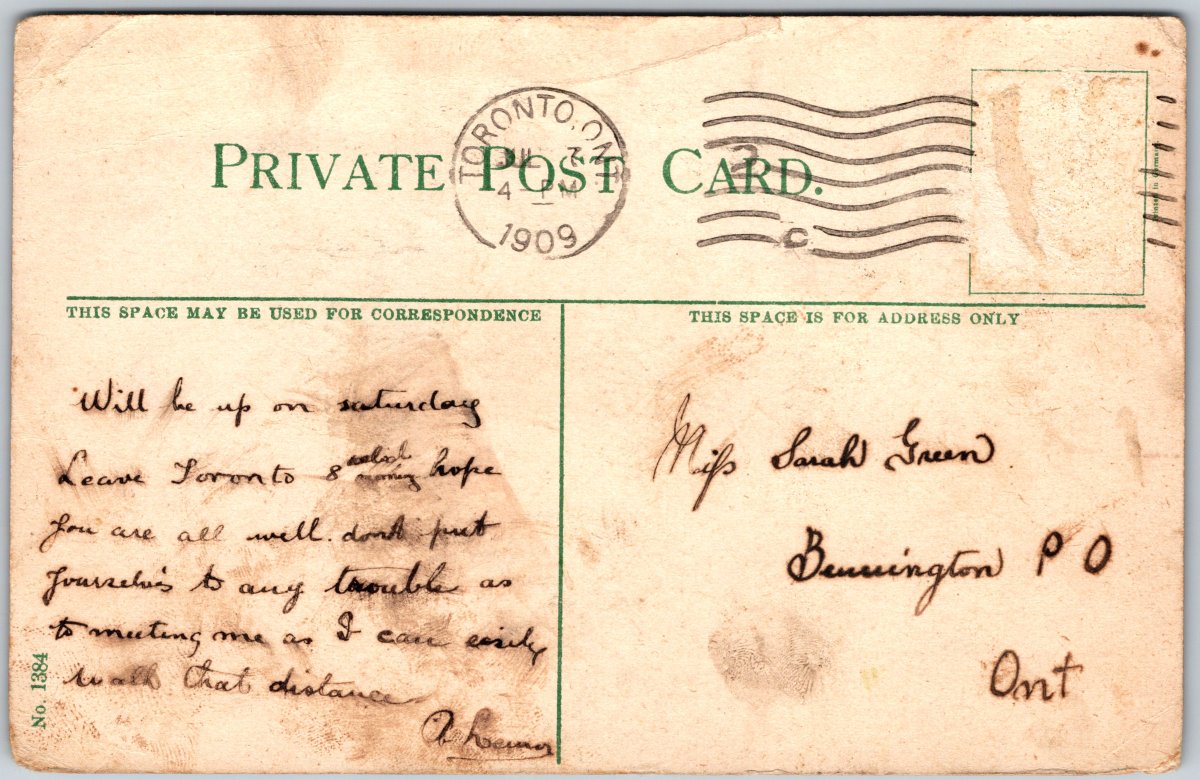 PRIVATE POST CARD.
TORONTO, ONT
JUL 7
4 PM
1909
2
C
THIS SPACE MAY BE USED FOR CORRESPONDENCE
Will be up on saturday
Leave Toronto 8 oclock morning hope
you are all well. dont put
yourselvis to any trouble as
to meeting me as I can eisily
walk that distance
A
THIS SPACE IS FOR ADDRESS ONLY
Miss Sarah Green
Bennington P O
Ont
No. 1384